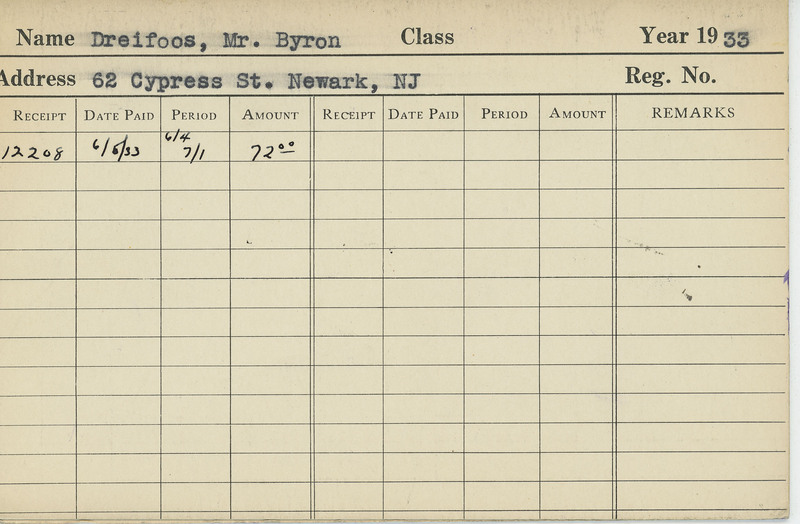 Name Dreifoos, Mr. Byron Class Year 1933
Address 62 Cypress St. Newark, NJ Reg. No.
RECEIPT DATE PAID PERIOD AMOUNT RECEIPT DATE PAID PERIOD AMOUNT REMARKS
12208 6/5/33 6/4 7/1 72.00